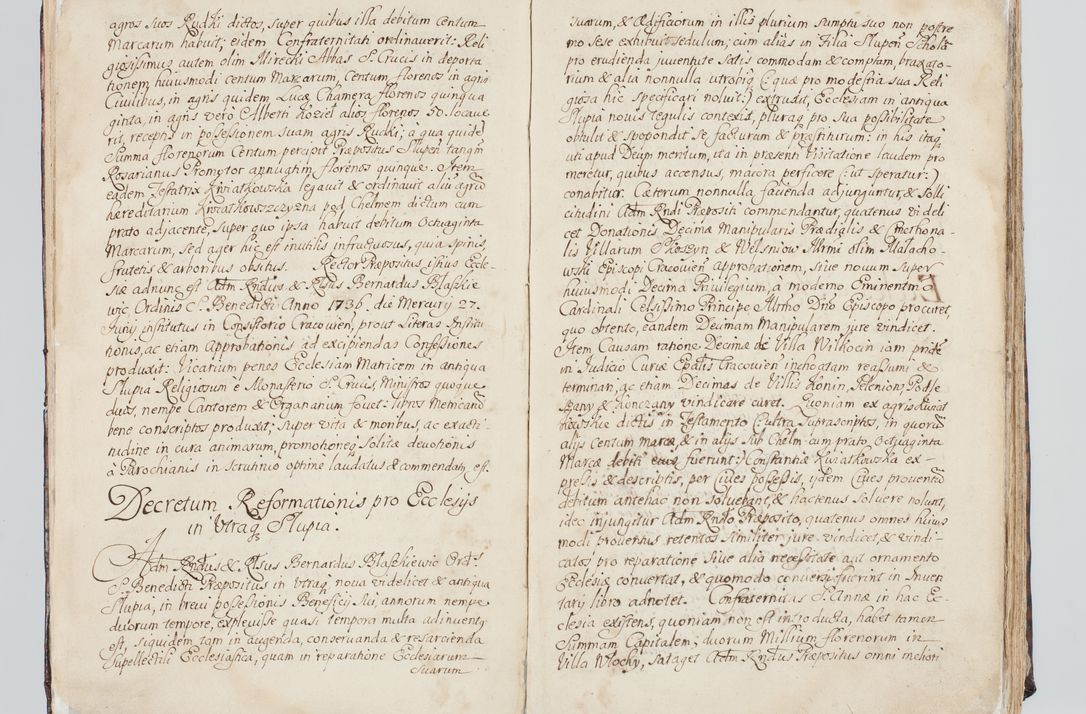 agros suos Rudki dictos, super quibus illa debitum Centum
Marcarum habuit; eidem Confraternitati ordinaverit: Reli
giosissimus autem olim Mirecki Abbas S. Crucis in deporta
tionem huiusmodi centum Marcarum, Centum florenos in agris
Civilibus, in agris quidem Lucæ Chamera florenos quinqua
ginta, in agris vero Alberti Koziel alios florenos 50. locave
rit, receptis in possessionem suam agris Rudki; a qua quidē
Summa florenorum Centum percipit Præpositus Slupen̄ tanqm̄
Rosarianus Promotor annuatim florenos quinque. Item
eadem Testatrix Kwiatkowska legavit & ordinavit alium agrū
hereditarium Kwiatkowszczyzna pod Chelmem dictum cum
prato adjacente, super quo ipsa habuit debitum Octuaginta
Marcarum, sed ager hic est inutilis infructuosus, quia spinis,
frutetis & arboribus obsitus. Rector Præpositus istius Eccle-
siæ adnunc est Adm Rndus & Rlsus Bernardus Blaskie
wic Ordinis S. Benedicti Anno 1736. die Mercurij 27.
Junij institutus in Consistorio Cracovien̄, prout Literas Institu
tionis, ac etiam Approbationis ad excipiendas Confessiones
produxit: Vicarium penes Ecclesiam Matricem in antiqua
Slupia Religiosum e Monasterio S. Crucis, Ministros quoque
duos, nempe Cantorem & Organarium fovet: libros Metricarū
bene conscriptos produxit; super vita & moribus, ac exacti-
tudine in cura animarum, promotione solitæ devotionis
à Parochianis in scrutinio optime laudatus & commendatus est.
Decretum Reformationis pro Ecclesijs
in Utraq Slupia.
Adm Rndus & Rlsus Bernardus Blaskiewic Ord.
S. Benedicti Præpositus in utraq nova videlicet & antiqua
Slupia, in brevi possessionis Beneficij sui, annorum nempe
duorum tempore, explevisse quasi tempora multa adinventus
est, siquidem tam in augenda, conservanda & resarcienda
Supellectili Ecclesiastica, quam in reparatione Ecclesiarum
suarum
suarum, & Ædificiorum in illis plurium sumptu suo non postre
mo sese exhibuit sedulum; cum aliàs in Filia Slupen̄ Scholā
pro erudienda juventute satis commodam & comptam, braxato-
rium & alia nonnulla utrobiq (: quæ pro modestia sua Reli
giosa hic specificari noluit:) extrudit, Ecclesiam in antiqua
Slupia novis tegulis contexit, pluraq pro sua possibilitate
obtulit & spopondit se facturum & præstiturum: in his itaq
uti apud Deum meritum, ita in præsenti Visitatione laudem pro
meretur, quibus accensus, maiora perficere (: ut speratur:)
conabitur. Cæterum nonnulla facienda adjunguntur, & solli
citudini Adm Rndi Præpositi commendantur, quatenus videli
cet Donationis Decima Manipularis Prædialis & Cmethona-
lis Villarum Skoszyn & Welsniow Illrmi olim Malacho-
wski Episcopi Cracovien̄ approbationem, sive novum super
huiusmodi Decima Privilegium, a moderno Eminentmo
Cardinali Celsissimo Principe Illrtho Dno Episcopo procuret,
quo obtento, eandem Decimam Manipularem jure vindicet.
Item Causam ratione Decimæ de Villa Wilkocin iam pridē
in Judicio Curiæ Epalis Cracovien̄ inchoatam reassumi &
terminari, ac etiam Decimas de Villis Konin, Jelenion, Podle
szany & Honczany vindicare curet. Quoniam ex agris Kwiat
kowskie dictis in Testamento (: ultra suprascriptos, in quorū
alijs Centum Marcæ, & in alijs sub Chelm cum prato, Octuaginta
Marcæ debiti eius fuerunt:) Constantiæ Kwiatkowska ex-
pressis & descriptis, per Cives possessis, ijdem Cives proventū
debitum antehac non solvebant, & hactenus solvere nolunt,
ideo injungitur Adm Rndo Præposito, quatenus omnes huius
modi proventus retentos similiter jure vindicet, & vindi-
catos pro reparatione sive alia necessitate aut ornamento
Ecclesiæ convertat, & quomodo conversi fuerint in Inven
tarij libro adnotet. Confraternitas S. Annæ in hac Ec-
clesia existens, quoniam non est introducta, habet tamen
Summam Capitalem; duorum Millium florenorum in
Villa Włochy, sataget Adm Rndus Præpositus omni meliori